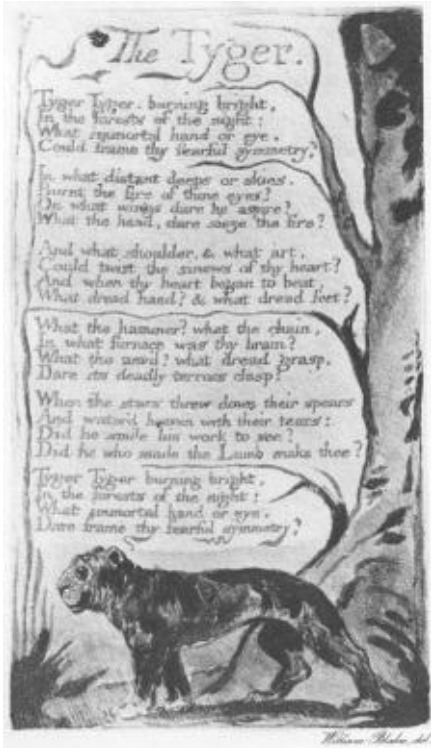 The Tyger.
Tyger Tyger. burning bright,
In the forests of the night:
What immortal hand or eye,
Could frame thy fearful symmetry?
In what distant deeps or skies.
Burnt the fire of thine eyes?
On what wings dare he aspire?
What the hand, dare sieze the fire?
And what shoulder, & what art,
Could twist the sinews of thy heart?
And when thy heart began to beat,
What dread hand? & what dread feet?
What the hammer? what the chain,
In what furnace was thy brain?
What the anvil? what dread grasp,
Dare its deadly terrors clasp?
When the stars threw down their spears
And water'd heaven with their tears:
Did he smile his work to see?
Did he who made the Lamb make thee?
Tyger Tyger burning bright,
In the forests of the night:
What immortal hand or eye,
Dare frame thy fearful symmetry?
William Blake, del